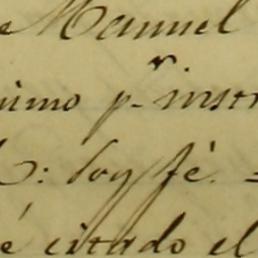 e Manuel
nimo pr. instr
: Doy fé. =
é citado el